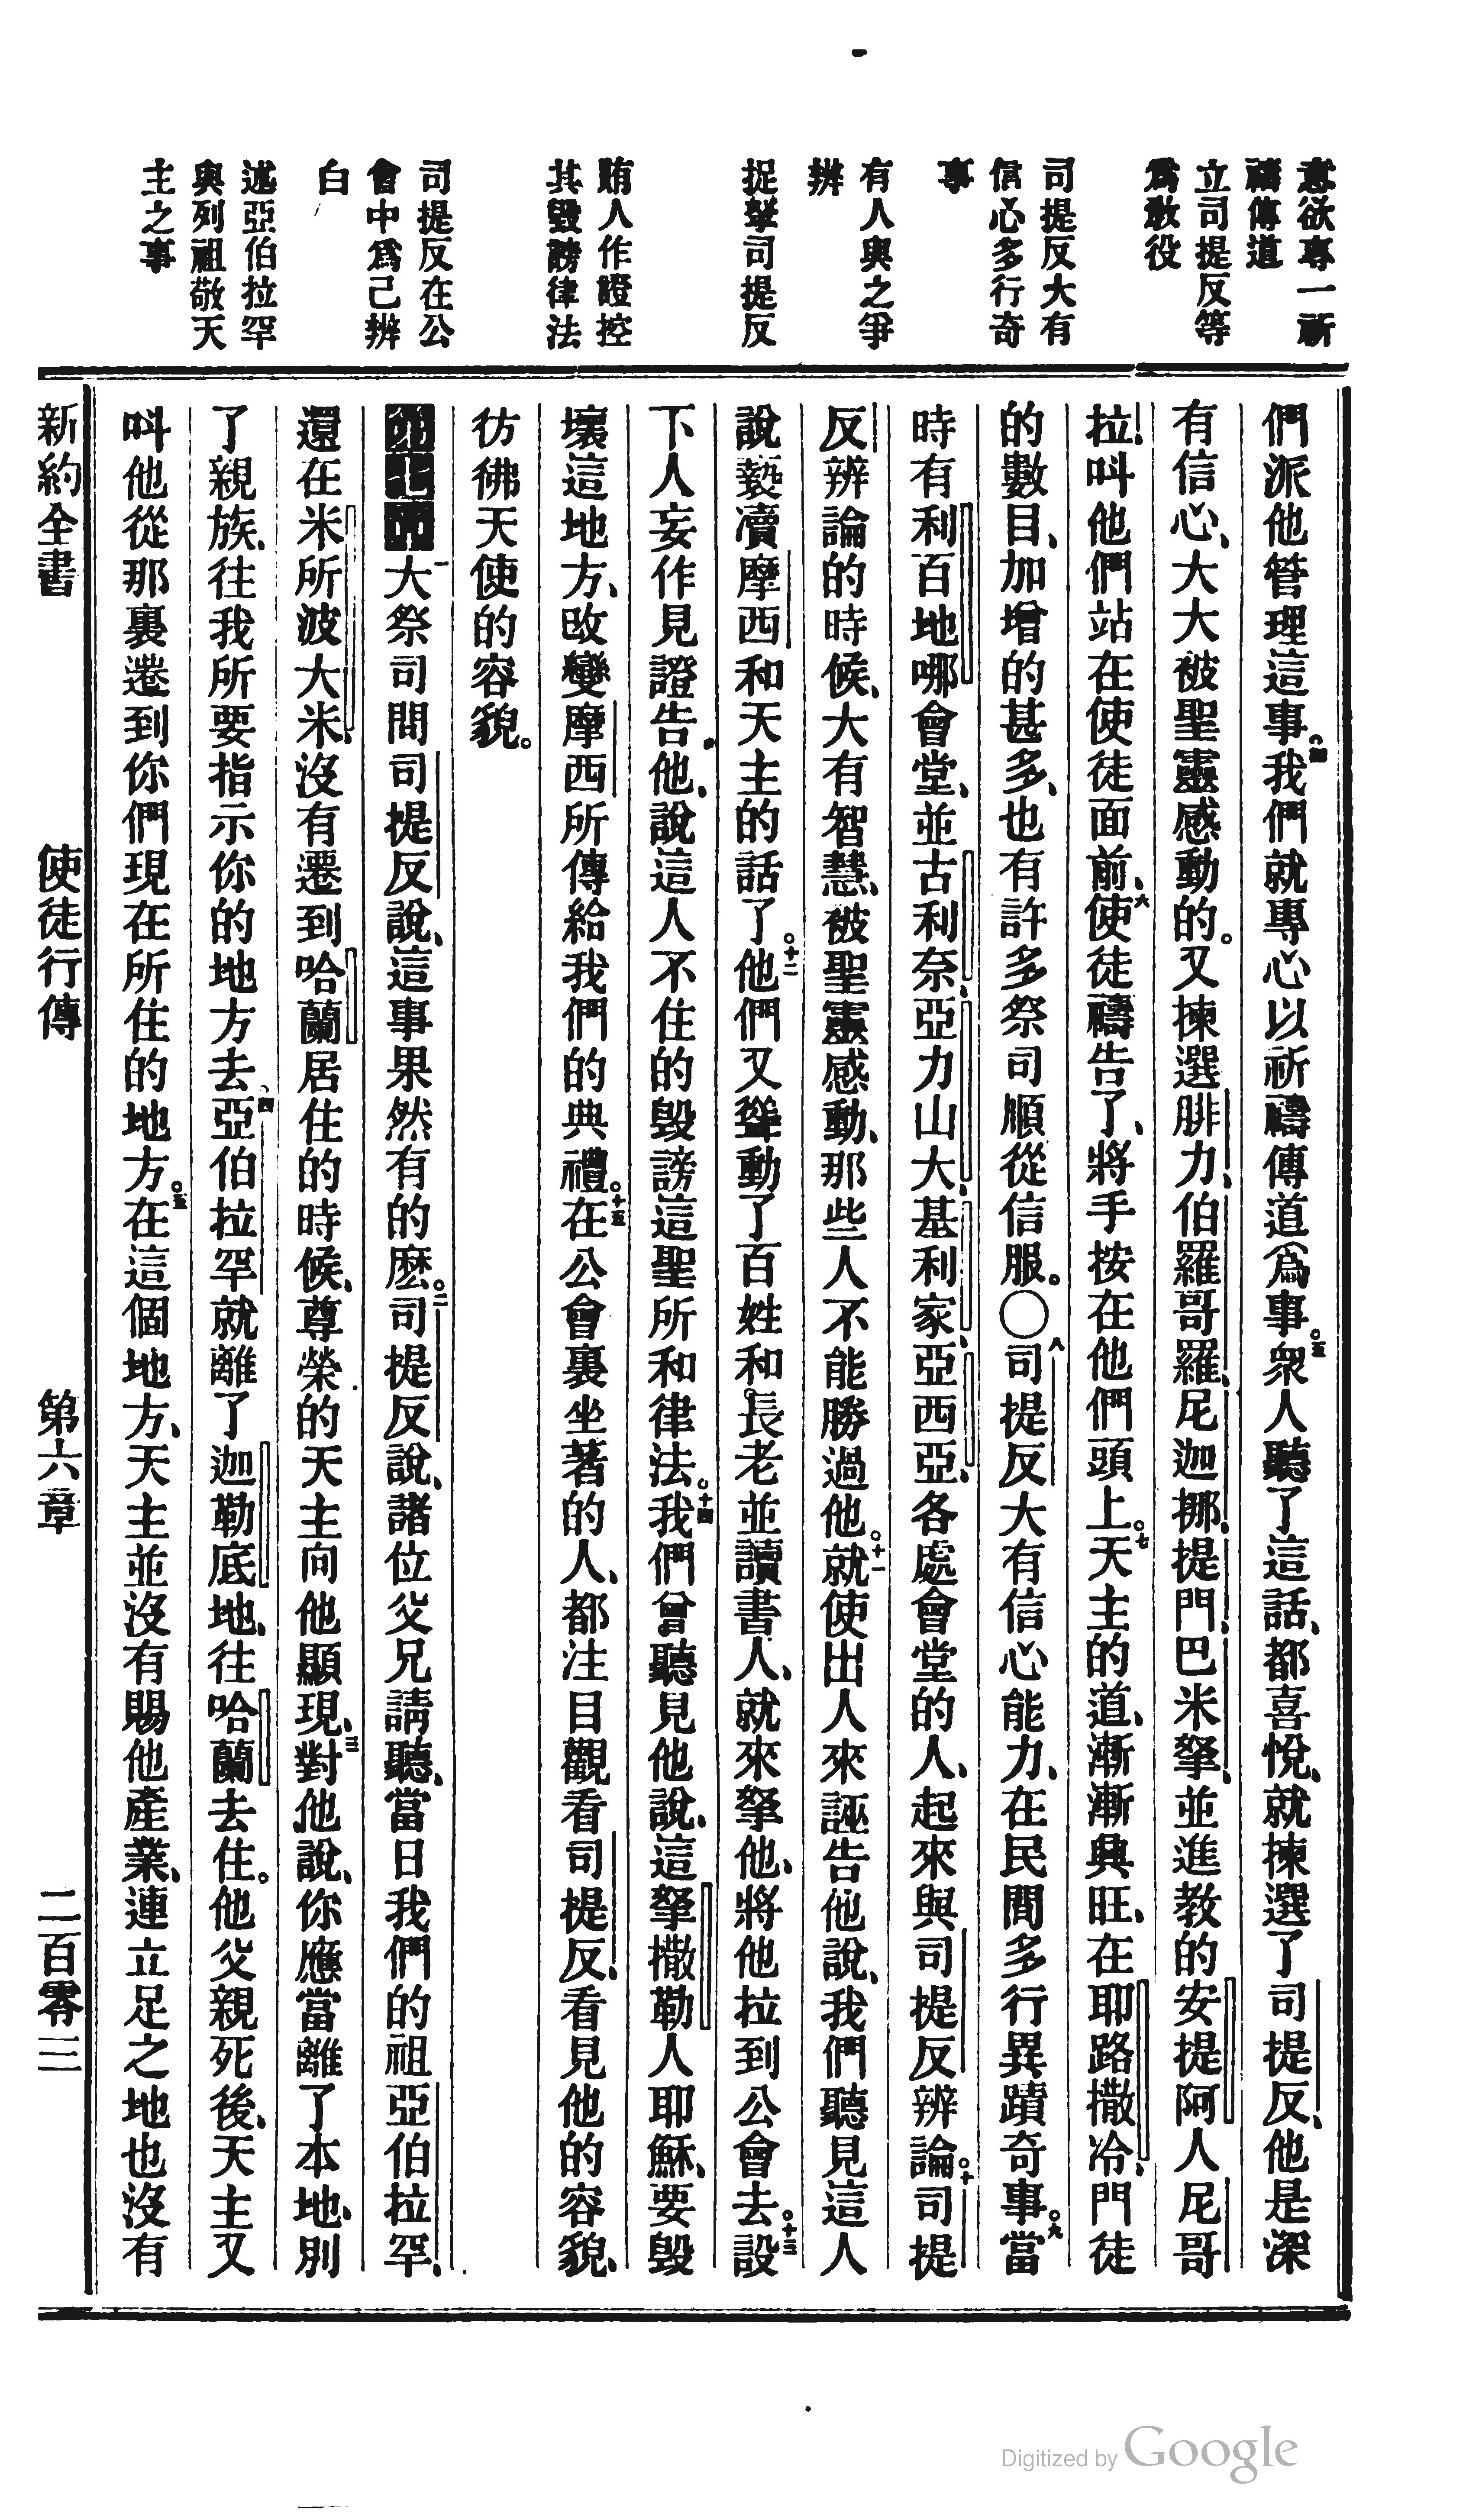 意欲專一祈
禱傳道
立司提反等
爲教役
司提反大有
信心多行奇
事
有人與之爭
辨
捉拏司提反
賄人作證控
其毀謗律法
司提反在公
會中爲己辨
白
述亞伯拉罕
與列祖敬天
主之事
們派他管理這事。四我們就專心以祈禱傳道爲事。五衆人聽了這話、都喜悅、就揀選了司提反、他是深
有信心、大大被聖靈感動的。又揀選腓力、伯羅哥羅、尼迦挪、提門、巴米拏、並進教的安提阿人尼哥
拉、叫他們站在使徒面前、六使徒禱告了、將手按在他們頭上。七天主的道、漸漸興旺、在耶路撒冷、門徒
的數目、加增的甚多、也有許多祭司順從信服。〇八司提反大有信心能力、在民間多行異蹟奇事。九當
時有利百地哪會堂、並古利奈、亞力山大、基利家、亞西亞、各處會堂的人、起來與司提反辨論。十司提
反辨論的時候、大有智慧、被聖靈感動、那些人不能勝過他。十一就使出人來誣告他說、我們聽見這人
說褻瀆摩西和天主的話了。十二他們又聳動了百姓和長老並讀書人、就來拏他、將他拉到公會去。十三設
下人妄作見證告他、說這人不住的毀謗這聖所和律法。十四我們曾聽見他說、這拏撒勒人耶穌、要毀
壞這地方、改變摩西所傳給我們的典禮。十五在公會裏坐著的人、都注目觀看司提反、看見他的容貌、
彷彿天使的容貌。
第七章一大祭司問司提反說、這事果然有的麽。二司提反說、諸位父兄請聽、當日我們的祖亞伯拉罕、
還在米所波大米、沒有遷到哈蘭居住的時候、尊榮的天主向他顯現、三對他說、你應當離了本地、別
了親族、往我所要指示你的地方去、四亞伯拉罕就離了迦勒底地、往哈蘭去住。他父親死後、天主又
叫他從那裏遷到你們現在所住的地方。五在這個地方、天主並沒有賜他產業、連立足之地也沒有
新約全書 使徒行傳 第六章 二百零三
Digitized by Google